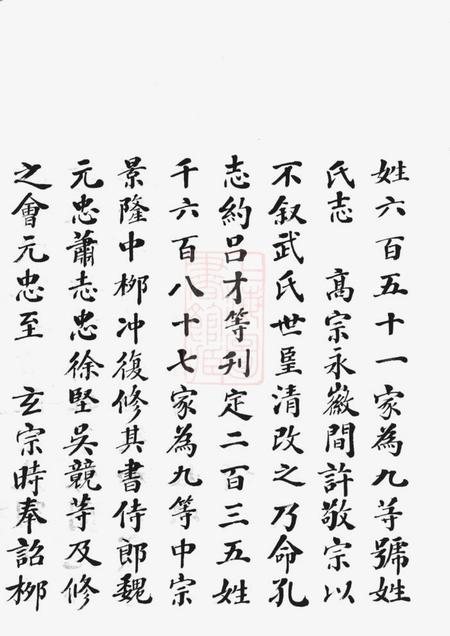 姓六百五十一家為九等號姓
氏志　高宗永徽間許敬宗以
不叙武氏世望清改之乃命孔
志約吕才等刊定二百三五姓
千六百八十七家為九等中宗
景隆中栁冲復修其書侍郎魏
元忠蕭志忠徐堅吳競等及修
之會元忠至　玄宗時奉詔栁